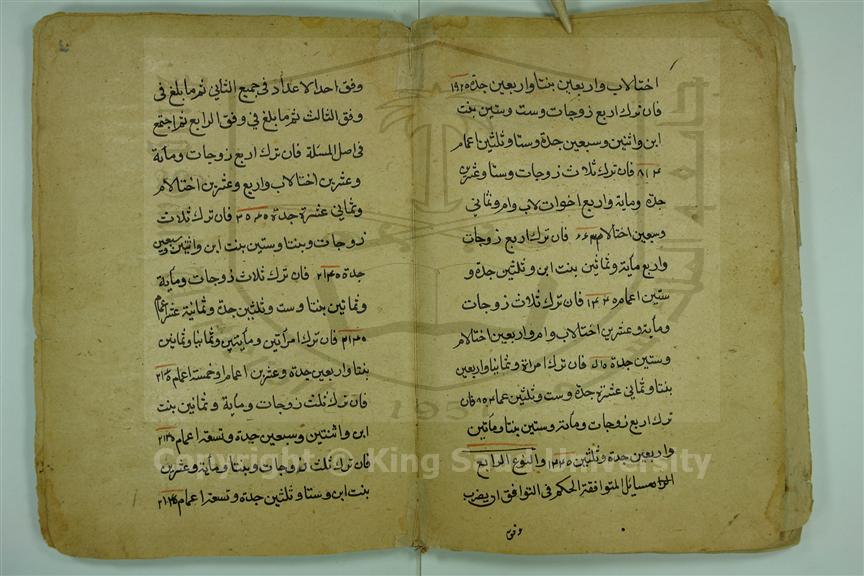 اختا لاب واربعين بنتا واربعين جدة ١٩٢٥
فان ترك اربع زوجات وست وستين بنت
ابن واثنين وسبعين جدة وستا وثلثين اعمام
فان ترك ثلاث زوجات وستا وعشره
جدة وماية واربع اخوات لاب وام وثماني
وسبعين اختا لام فان ترك اربع زوجات
واربع ماية وثمانين بنت ابن وثلثين جدة و
ستين اعمام فان ترك ثلاث زوجات
وماية وعشرين اختا لاب وام واربعين اختا لام
وستين جدة فان ترك امراة وثمانيا واربعين
بنتا وثماني عشرة جدة وست وثلثين عمام فان
ترك اربع زوجات وستين بنتا ومأتين
واربعين جدة وثلثين والنوع الرابع
المسائل المتوافقة الحكم في التوافق ان يضرب
وفق
وفق احد الاعداد في جميع الثاني ثم ما بلغ في
وفق الثالث ثم ما بلغ في وفق الرابع ثم اجتمع
في اصل المسئلة فان ترك اربع زوجات وماية
وعشرين اختا لاب واربع وعشرين اختا لام
وثماني عشرة جدة فان ترك ثلاث
زوجات وبنتا وستين بنت ابن واثنين وسبعين
جدة فان ترك ثلاث زوجات وماية
وثمانين بنتا وست وثلثين جدة وثمانية عشر اعمام
فان ترك امرأتين وثمانيا وثمانين
بنتا واربعين جدة وعشرين اعمام او خمسة اعمام
فان ترك ثلث زوجات وماية وثمانين بنت
ابن واثنتين وسبعين جدة وتسعة اعمام
فان ترك ثلث زوجات وبنتا وماية وعشرين
بنت ابن وستا وثلثين جدة وتسعة اعمام
Copyright © King Saud University
1957